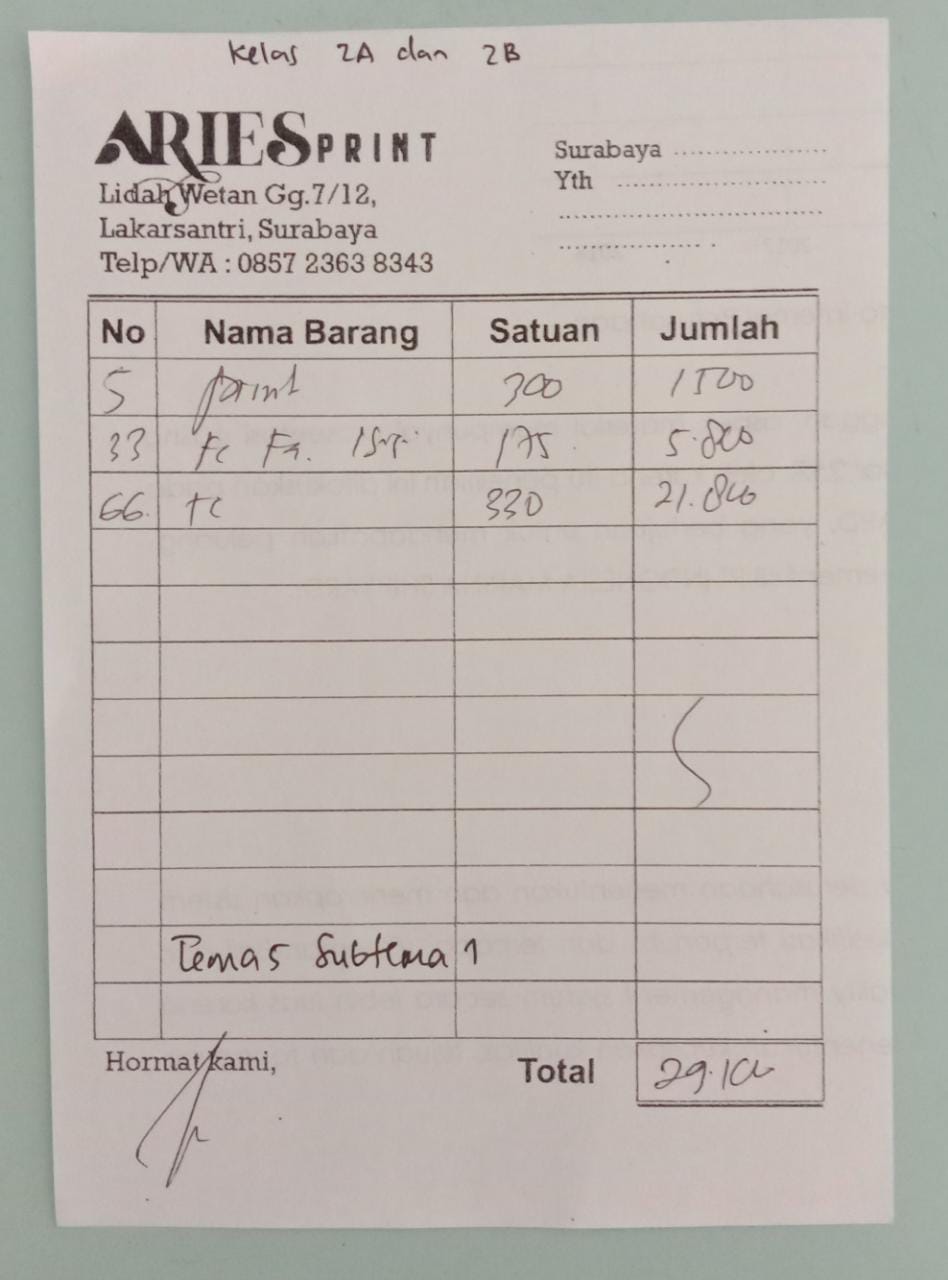 Kelas 2A dan 2B
ARIES PRINT
Lidah Wetan Gg.7/12,
Lakarsantri, Surabaya
Telp/WA : 0857 2363 8343
Surabaya ....................
Yth ....................
No Nama Barang Satuan Jumlah
5 print 300 1500
33 Fc 175 5.800
66. Fc 330 21.800
Tema 5 Subtema 1
Hormat kami,
Total 29.100